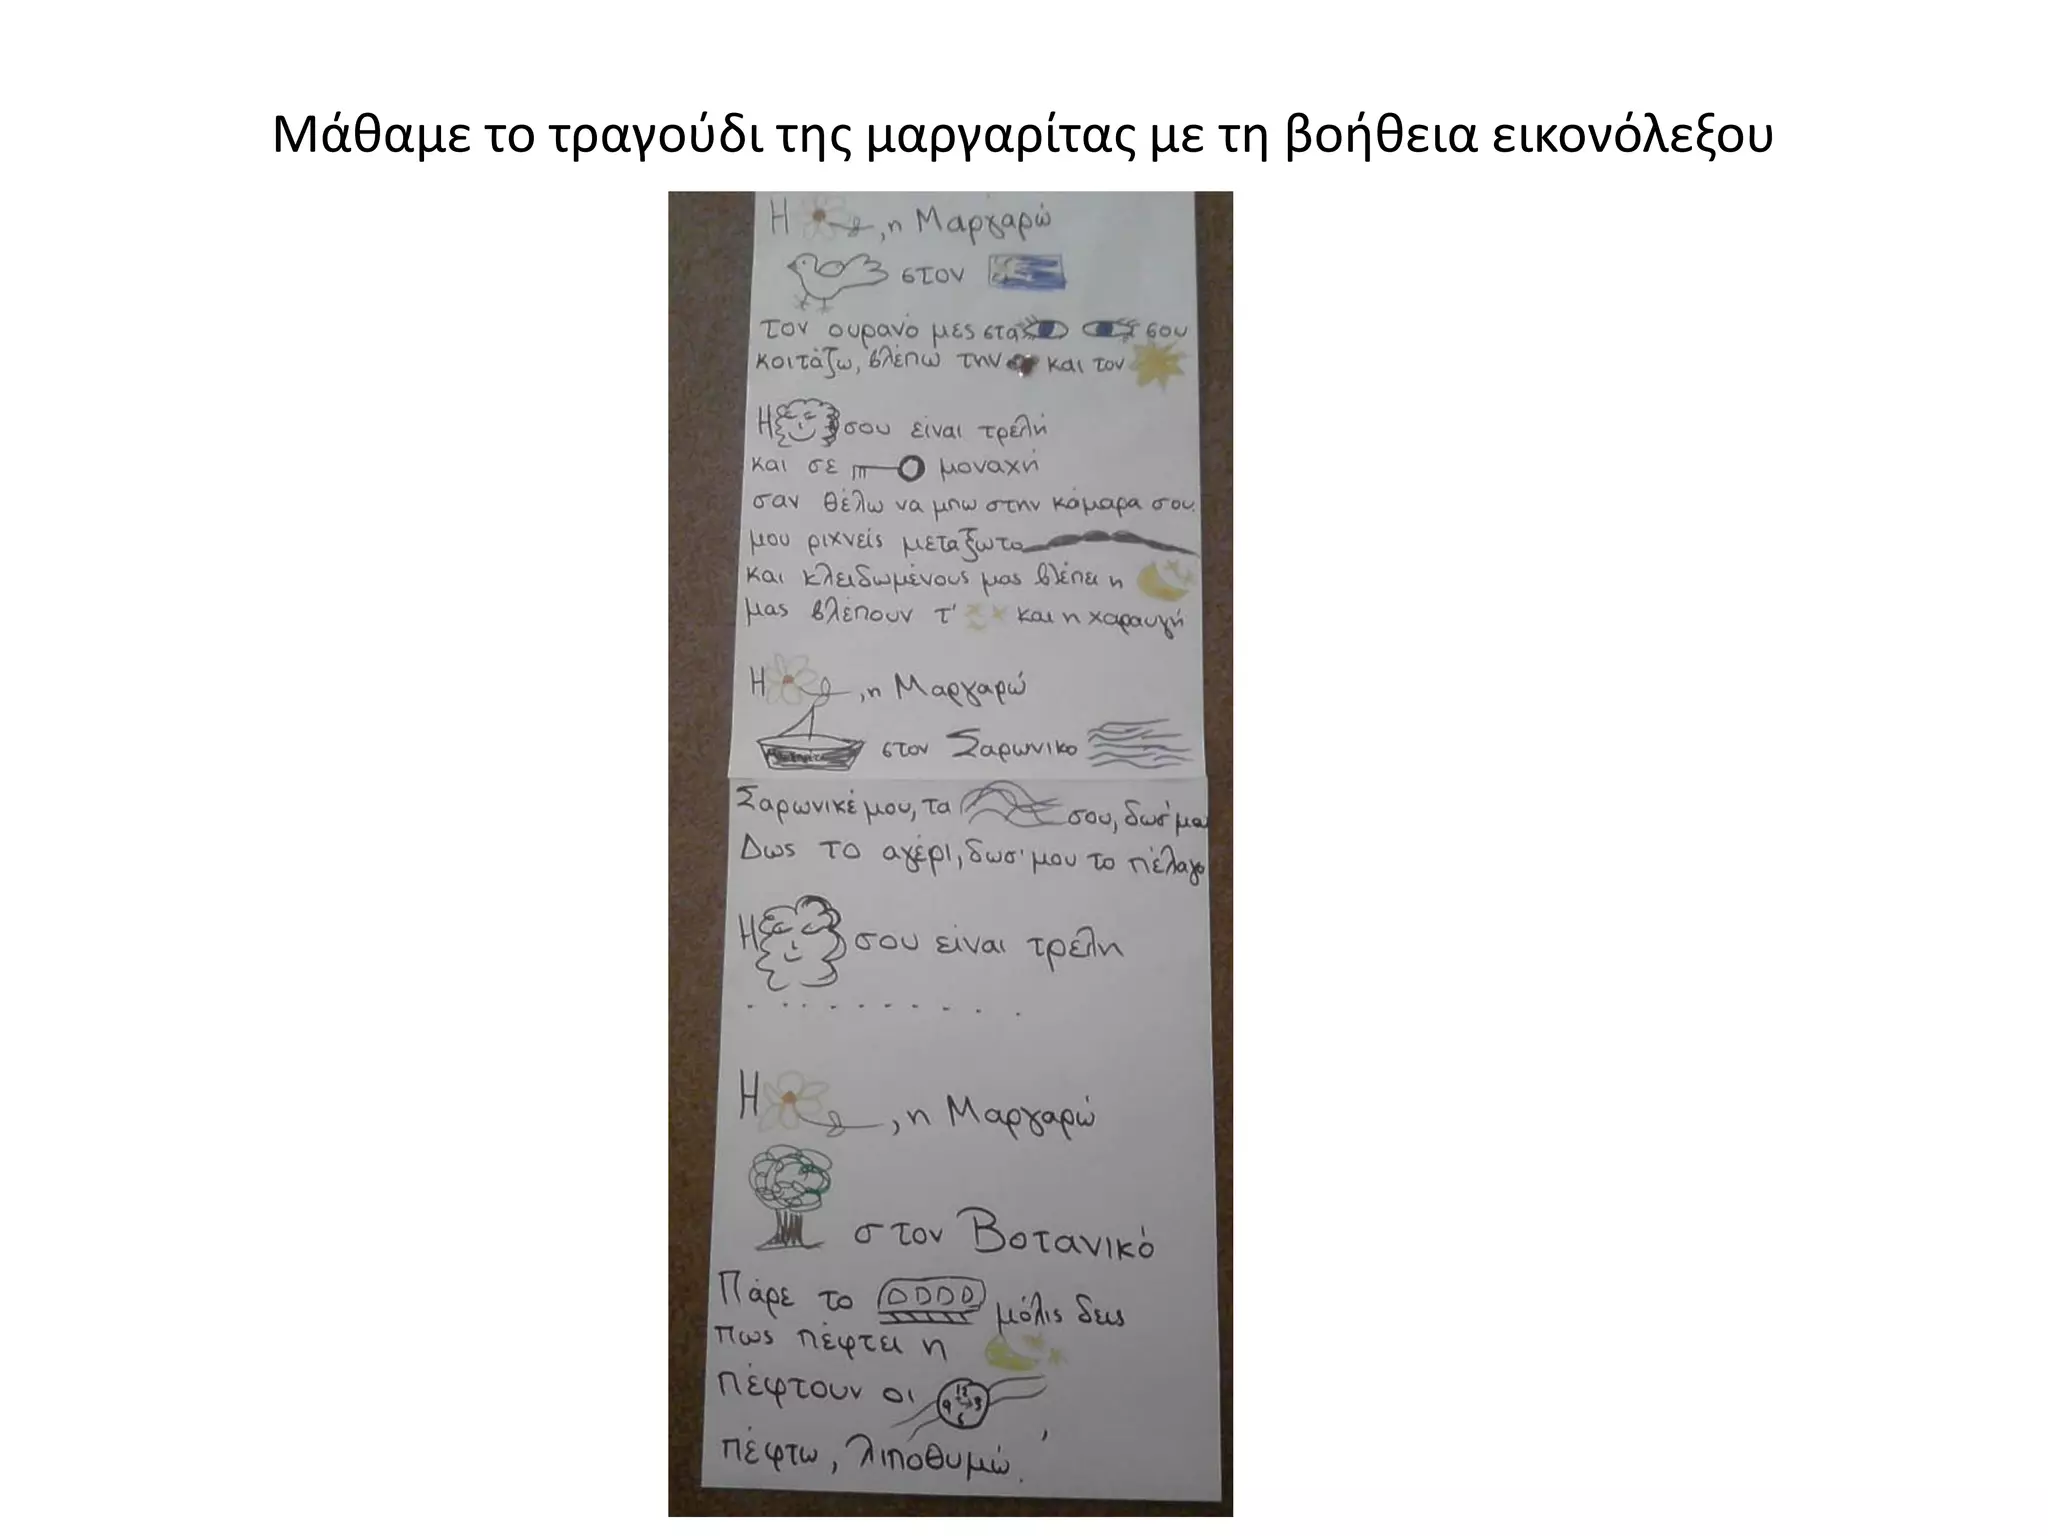 Μάθαμε το τραγούδι της μαργαρίτας με τη βοήθεια εικονόλεξου
Η , η Μαργαρώ
στον
τον ουρανό μες στα σου
κοιτάζω, βλέπω την και τον
Η σου είναι τρελή
και σε μοναχή
σαν θέλω να μπω στην κάμαρα σου.
μου ριχνείς μεταξωτο
και κλειδωμένους μας βλέπει η
μας βλέπουν τ' και η χαραυγή
Η , η Μαργαρώ
στον Σαρωνικο
Σαρωνικέ μου, τα σου, δωσ' μου
Δως το αγέρι, δωσ' μου το πέλαγο
Η σου είναι τρέλη
. . . . . . . . . .
Η , η Μαργαρώ
στον Βοτανικό
Πάρε το μόλις δεις
πως πέφτει η
πέφτουν οι 12 3 6 9 ,
πέφτω, λιποθυμώ.